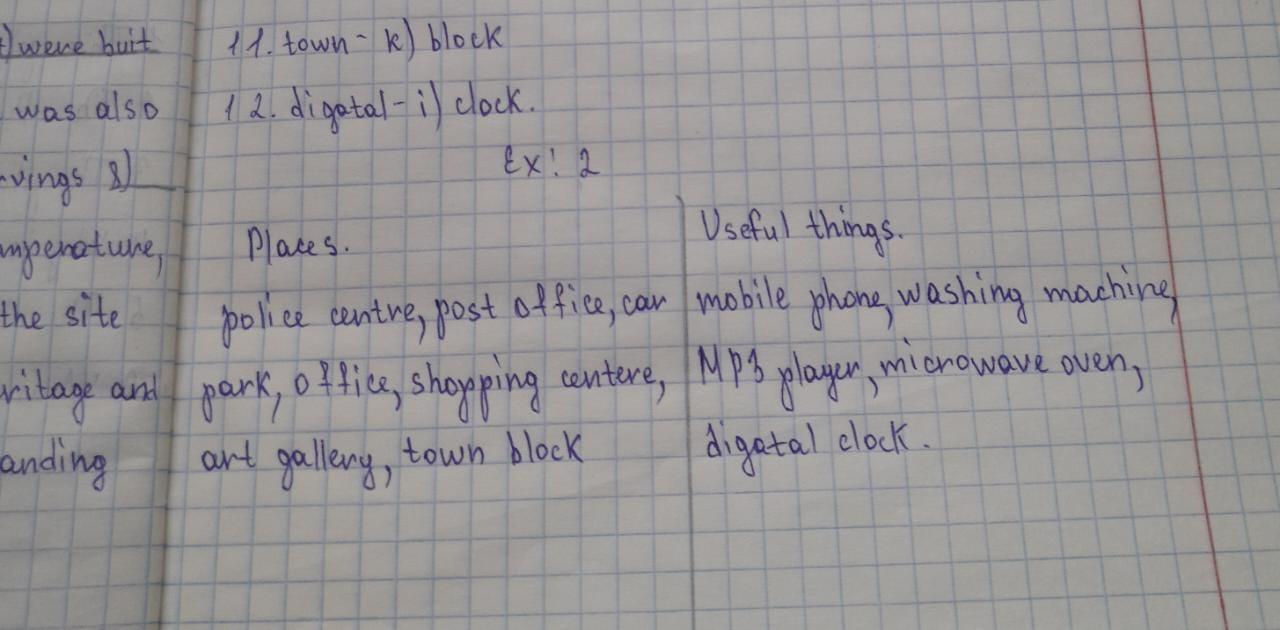 were buit
was also
vings 8)
mperature,
the site
ritage and
anding
11. town - k) block
12. digatal - i) clock.
Ex: 2
Places.
police centre, post office, car
park, office, shopping centere,
art gallery, town block
Useful things.
mobile phone, washing machine,
MP3 player, microwave oven,
digatal clock.